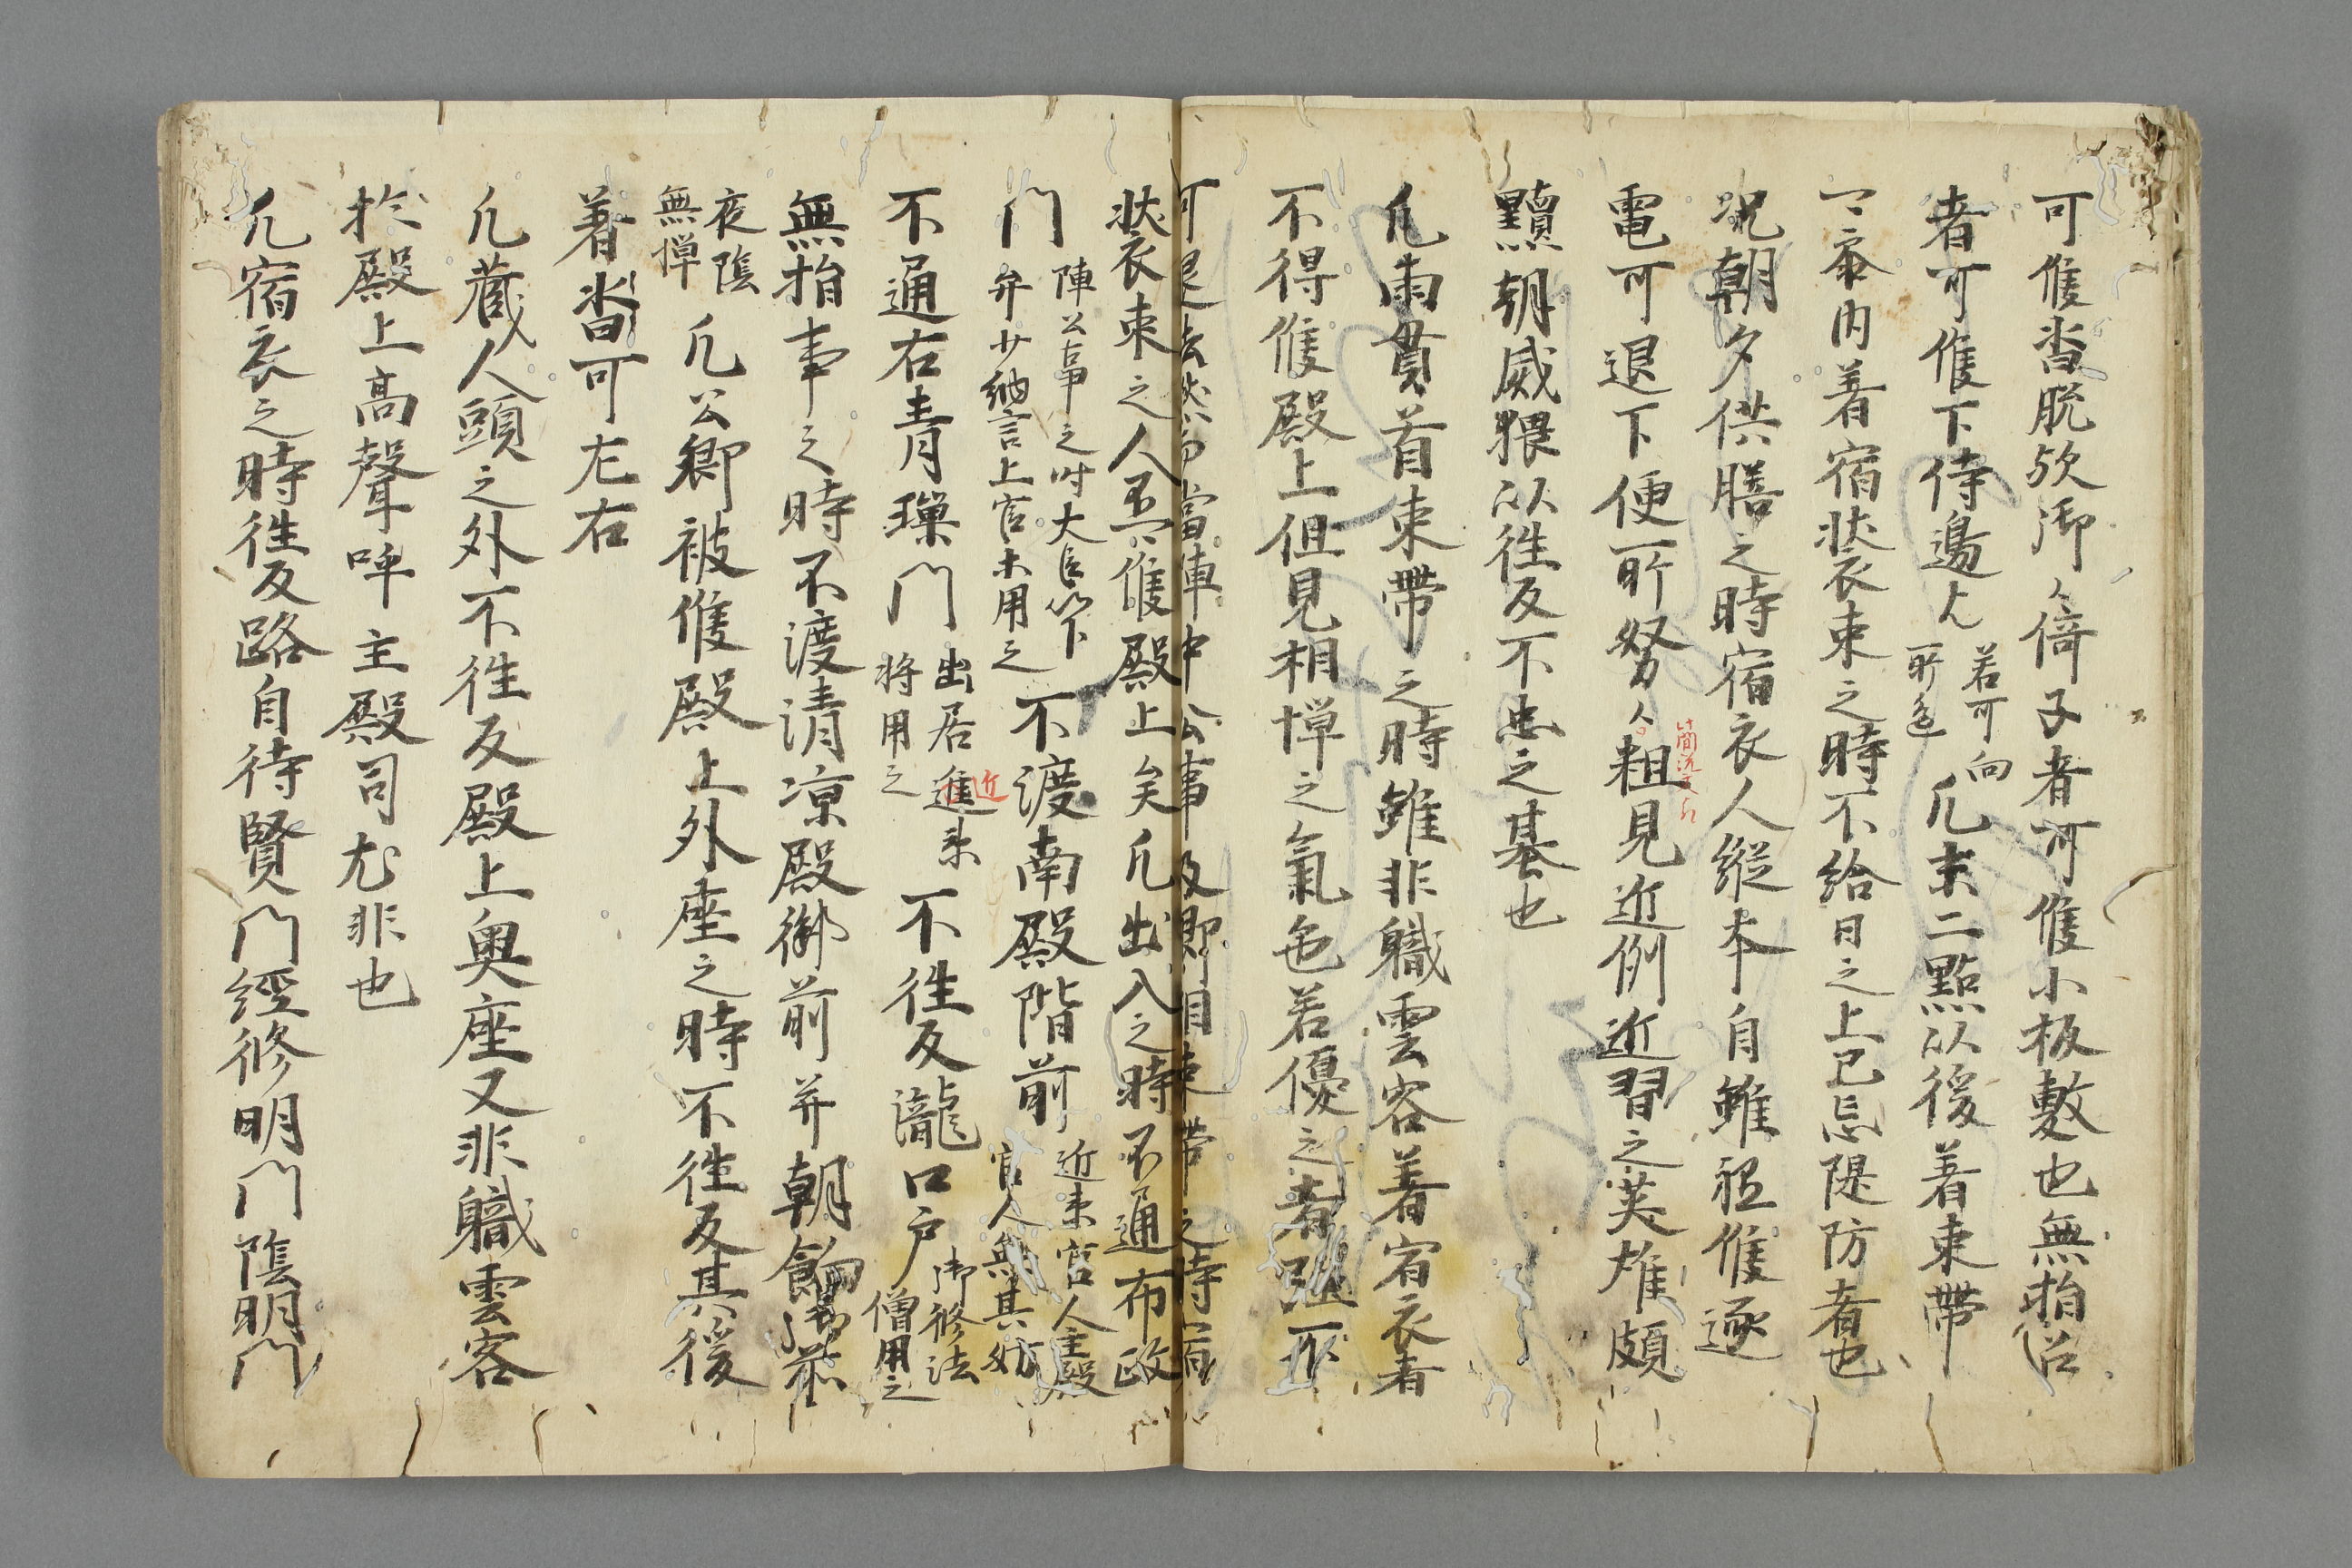 可候沓脱欤御〻倚子者可候小板敷也無指召
者可候下侍邊〻
若可向
所邑
凡未二點以後着束帶
着宿装束之時不給日之上已忘隄防者也
况朝夕供膳之時宿衣人縦本自雖祗候逐
電可退下便所努〻粗見近例近習之英雄頗
黷朝威猥以徃反不忠之基也
凡両貫首束帶之時雖非職雲客着宿衣者
不得候殿上但見相憚之氣色若優之者
可退去然而當陣中公事及即自束帶之時宿
装束之人、候殿上矣凡出入之時不通布政
門
陣公事之時大臣以下
弁少納言上官未用之
不渡南殿階前
近来官人主殿
官人無其妨
不通右青璅門
出居進来
近
将用之
不徃反瀧口戸
御修法
僧用之
無指事之時不渡清凉殿御前并朝餉前
夜陰
無憚
凡公卿被候殿上外座之時不徃反其後
着沓可左右
凡蔵人頭之外不徃反殿上奥座又非軄雲客
於殿上高聲呼主殿司尤非也
凡宿衣之時徃反路自待賢門經修明門陰明門